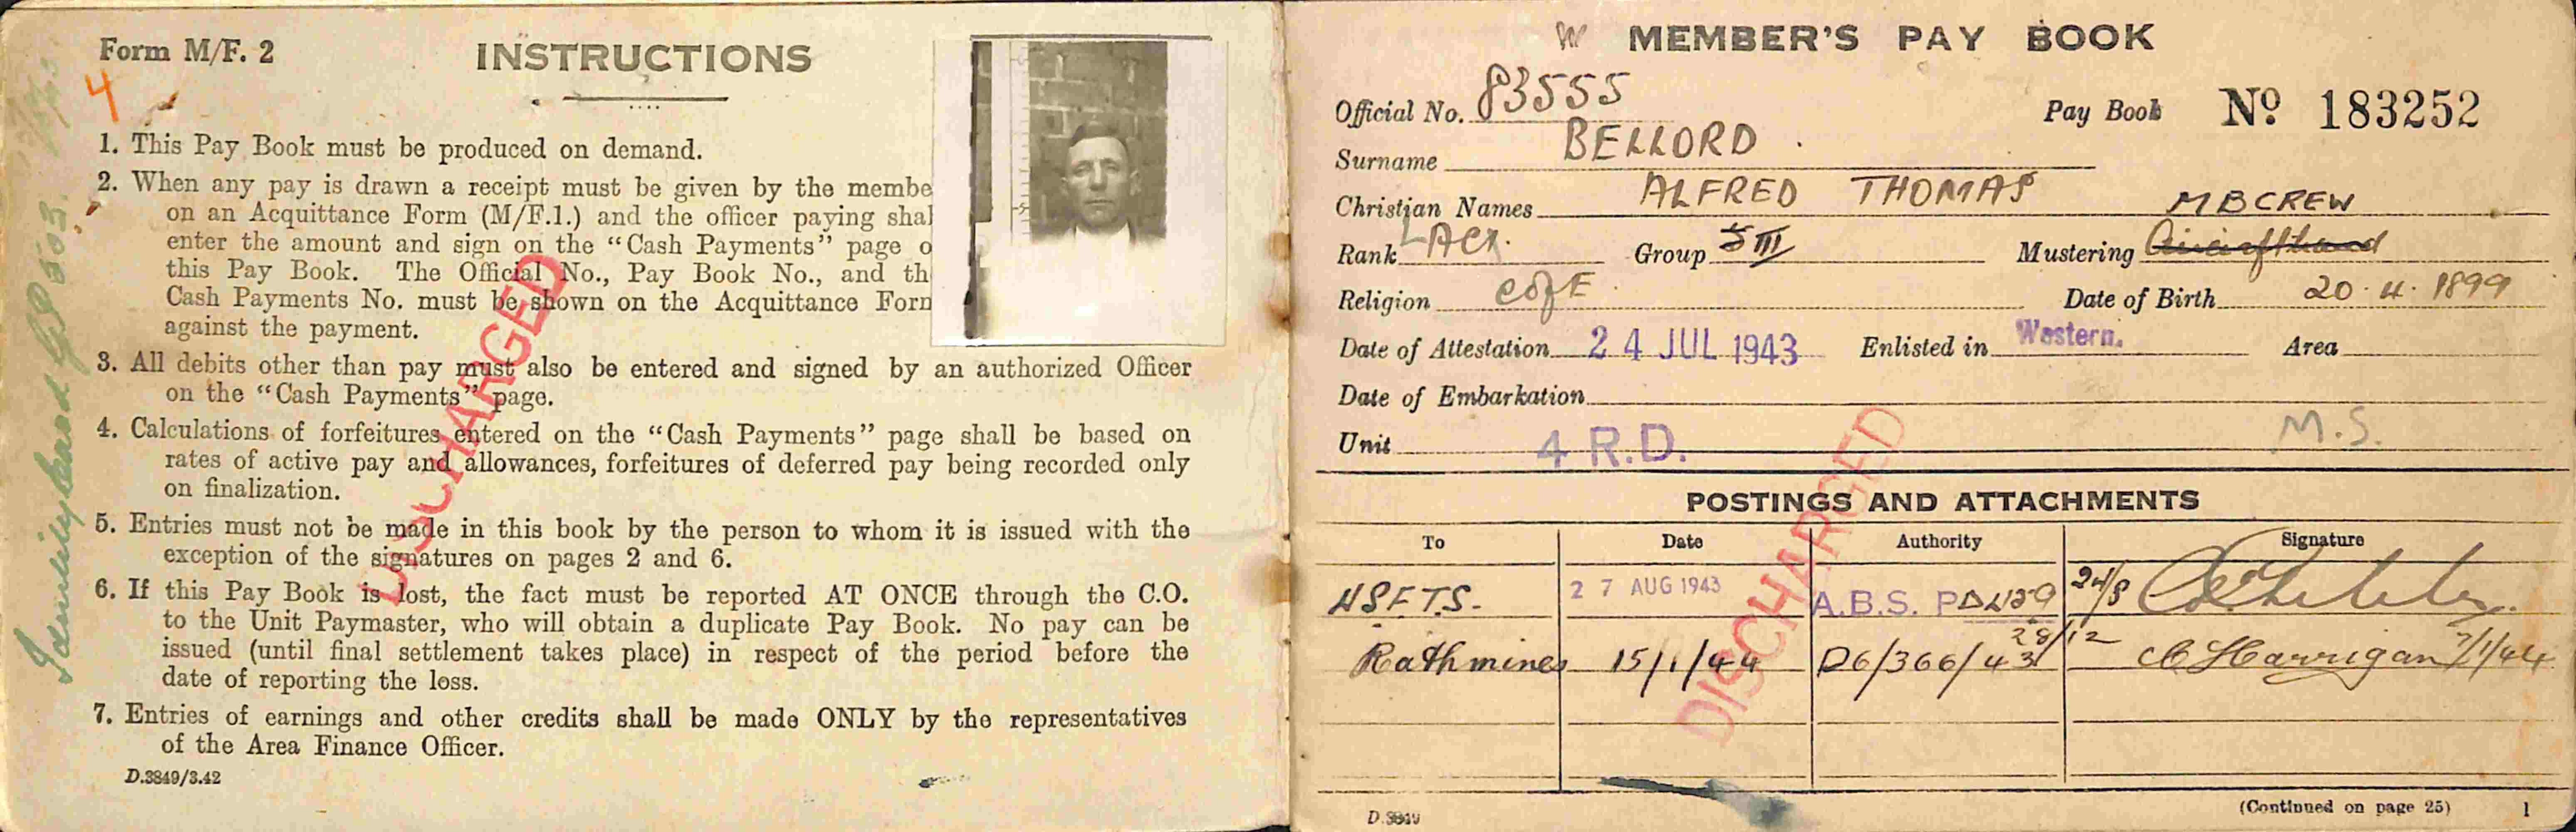 Form M/F. 2
INSTRUCTIONS
4
1. This Pay Book must be produced on demand.
2. When any pay is drawn a receipt must be given by the membe
on an Acquittance Form (M/F.1.) and the officer paying shal
enter the amount and sign on the “Cash Payments” page o
this Pay Book. The Official No., Pay Book No., and th
Cash Payments No. must be shown on the Acquittance Forn
against the payment.
3. All debits other than pay must also be entered and signed by an authorized Officer
on the “Cash Payments” page.
4. Calculations of forfeitures entered on the “Cash Payments” page shall be based on
rates of active pay and allowances, forfeitures of deferred pay being recorded only
on finalization.
5. Entries must not be made in this book by the person to whom it is issued with the
exception of the signatures on pages 2 and 6.
6. If this Pay Book is lost, the fact must be reported AT ONCE through the C.O.
to the Unit Paymaster, who will obtain a duplicate Pay Book. No pay can be
issued (until final settlement takes place) in respect of the period before the
date of reporting the loss.
7. Entries of earnings and other credits shall be made ONLY by the representatives
of the Area Finance Officer.
D.3849/3.42
DISCHARGED
W MEMBER'S PAY BOOK
Official No. 83555 Pay Book Nº 183252
Surname BELLORD
Christian Names ALFRED THOMAS
Rank LACI. Group 5 III Mustering Aircrafthand MBCREW
Religion C of E. Date of Birth 20.4.1899
Date of Attestation 24 JUL 1943 Enlisted in Western. Area
Date of Embarkation
Unit 4 R.D. M.S.
POSTINGS AND ATTACHMENTS
To Date Authority Signature
27 AUG 1943 A.B.S. 24/8
Rathmines 15/1/44 D6/366/43 28/12 Harrigan 7/1/44
DISCHARGED
D.3849
(Continued on page 25) 1